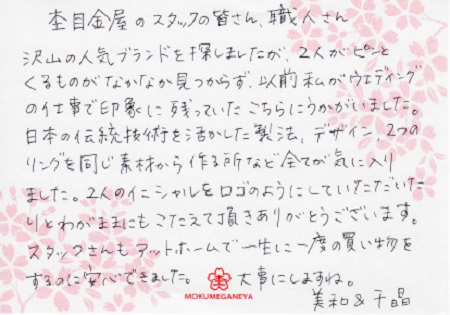 杢目金屋のスタッフの皆さん、職人さん
沢山の人気ブランドを探しましたが、2人がピンと
くるものがなかなか見つからず、以前私がウエディング
の仕事で印象に残っていたこちらにうかがいました。
日本の伝統技術を活かした製法、デザイン、2つの
リングを同じ素材から作る所など全てが気に入り
ました。2人のイニシャルをロゴのようにしていただいた
りとわがままにもこたえて頂きありがとうございます。
スタッフさんもアットホームで一生に一度の買い物を
するのに安心できました。 大事にしますね。
MOKUMEGANEYA
美和&千晶